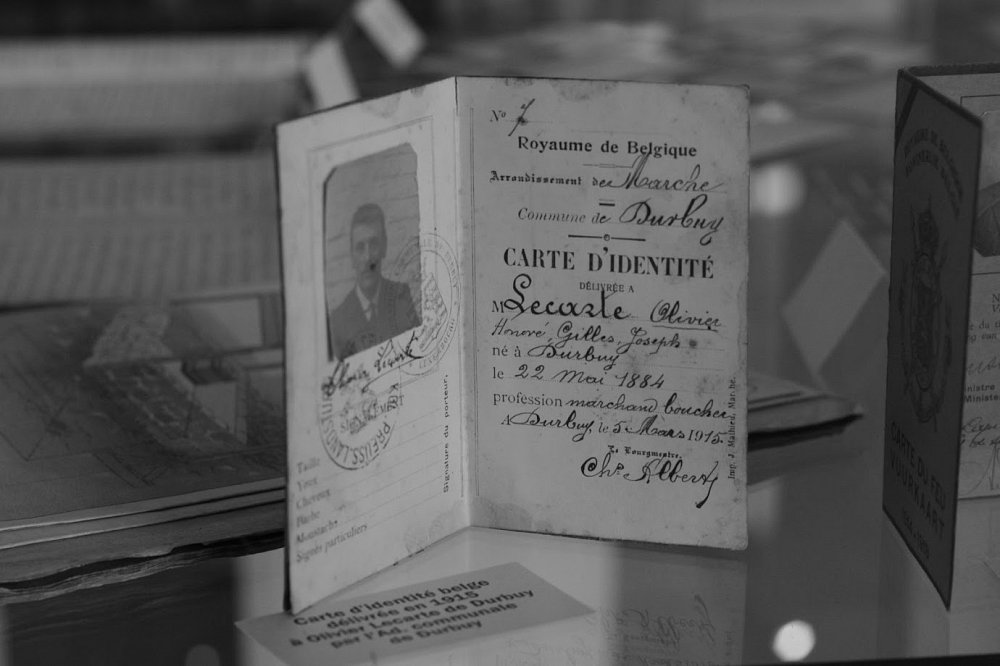 Nº 7
Royaume de Belgique
Arrondissement de Marche
Commune de Durbuy
CARTE D'IDENTITÉ
DÉLIVRÉE A
M Lecarte Olivier
Honoré, Gilles, Joseph
né à Durbuy
le 22 Mai 1884
profession marchand boucher
A Durbuy, le 5 Mars 1915.
Le Bourgmestre,
Chs Albert
Imp. J. Mathieu, Marche.
SIGNALEMENT
PREUSS. LANDST
Taille
Yeux
Cheveux
Barbe
Moustache
Signes particuliers
Signature du porteur,
Carte d'identité belge
délivrée en 1915
à Olivier Lecarte de Durbuy
par l'Ad. communale
de Durbuy
CARTE DU FEU
VUURKAART